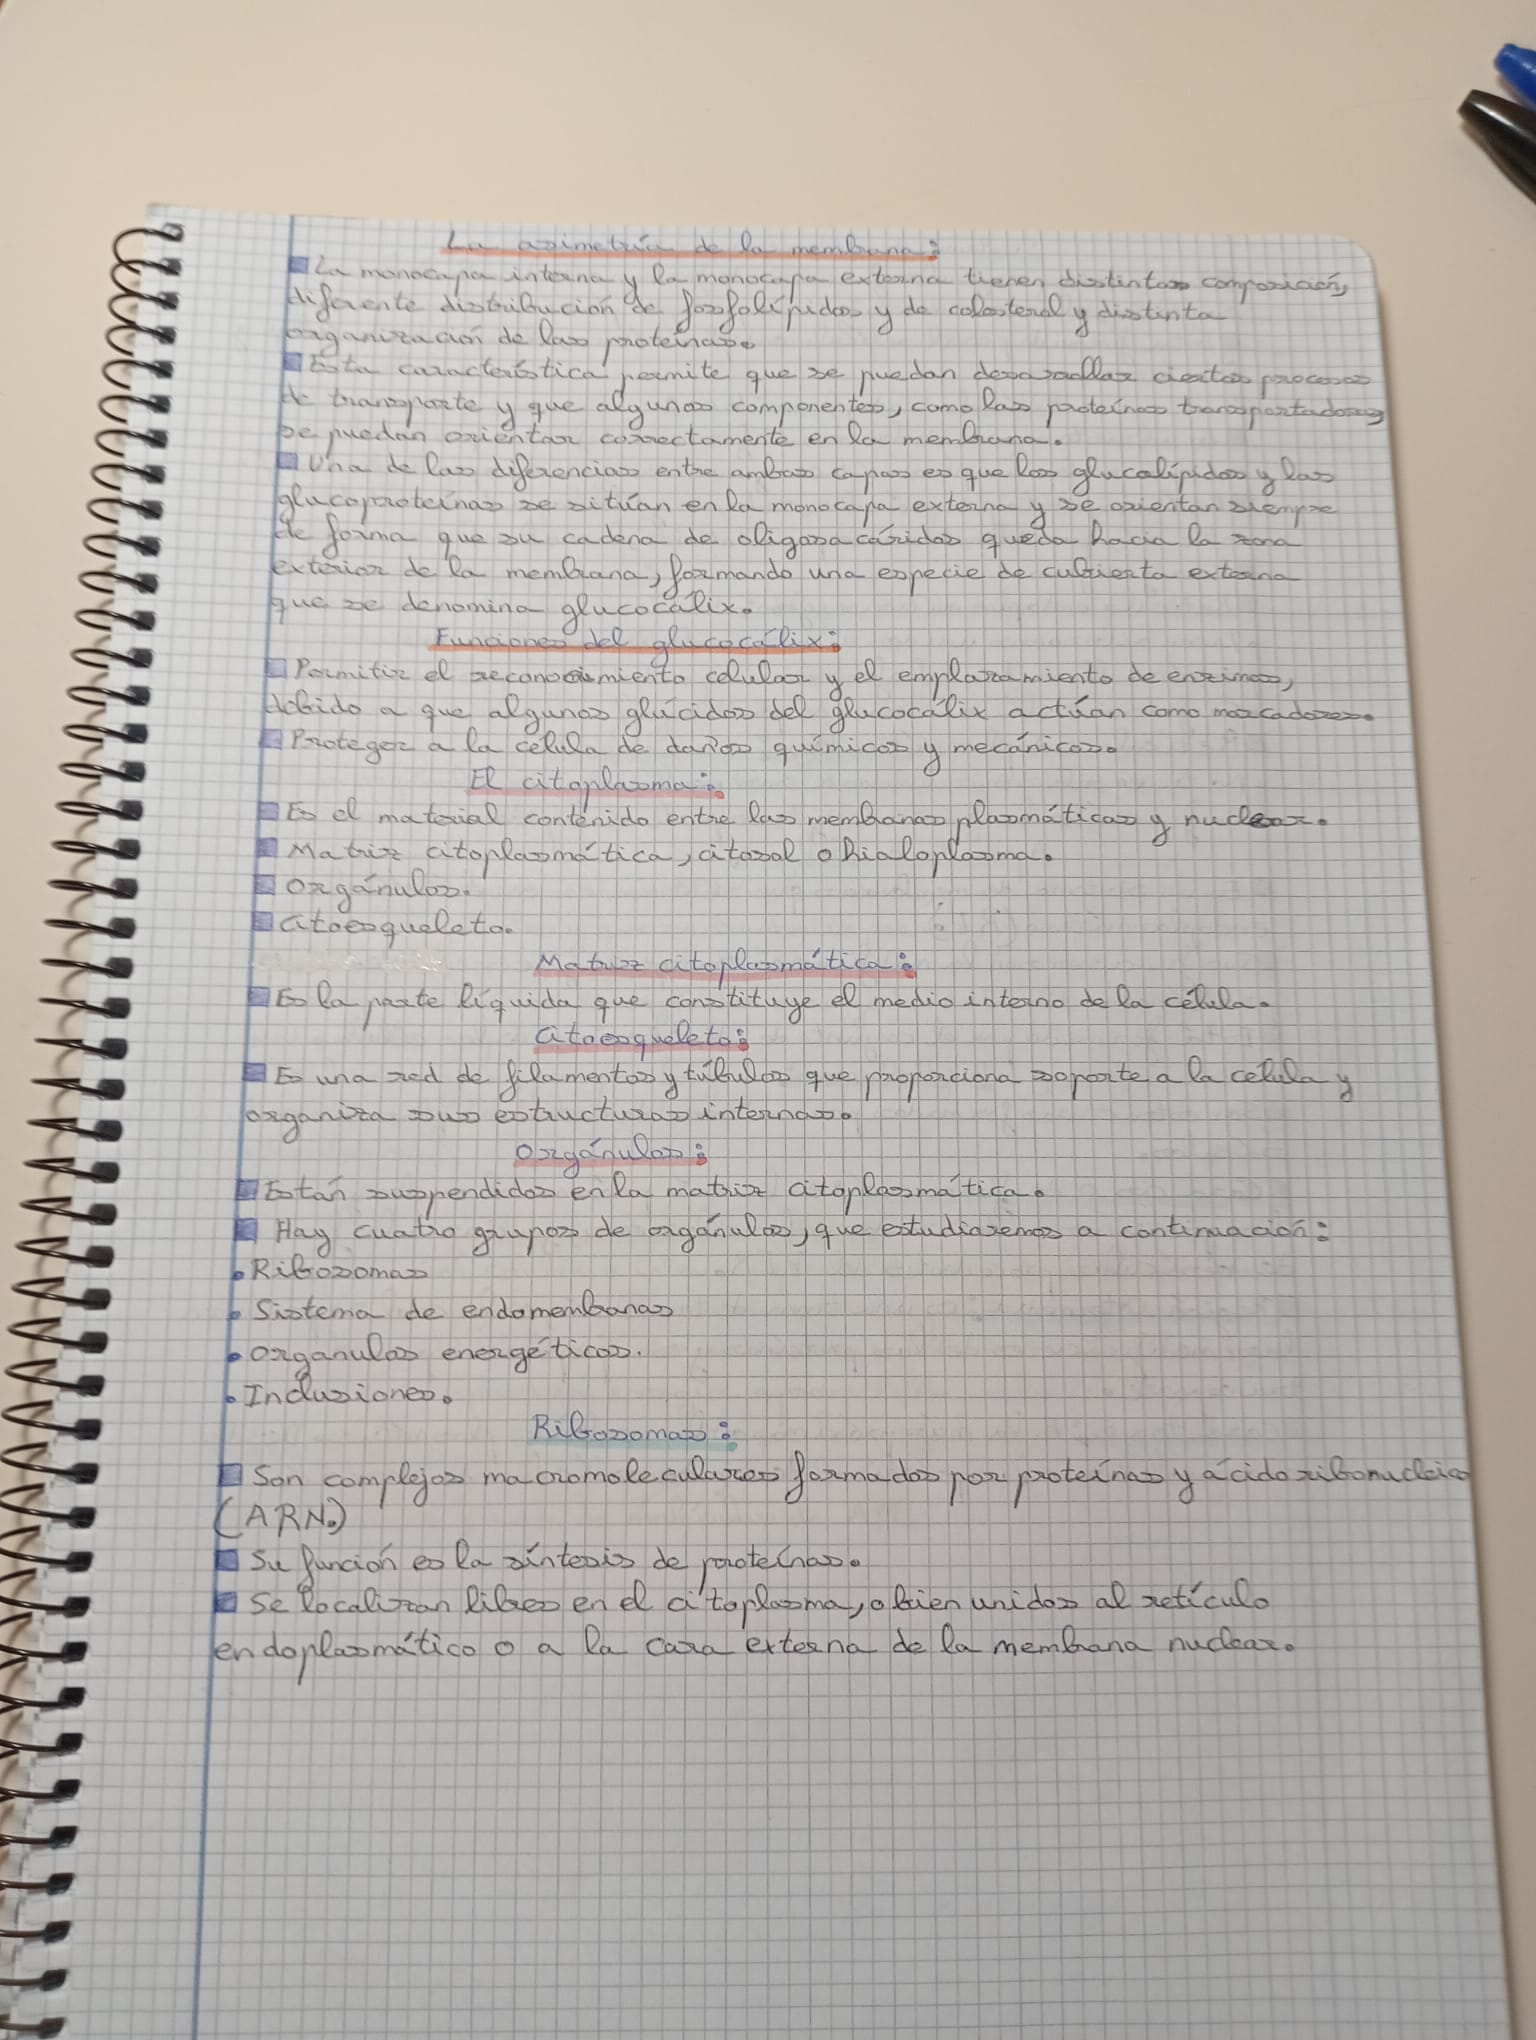 La asimetría de la membrana:
La monocapa interna y la monocapa externa tienen distintas composición,
diferente distribución de fosfolípidos y de colesterol y distinta
organización de las proteínas.
Esta característica permite que se puedan desarrollar ciertos procesos
de transporte y que algunos componentes, como las proteínas transportadoras
se puedan orientar correctamente en la membrana.
Una de las diferencias entre ambas capas es que los glucolípidos y las
glucoproteínas se sitúan en la monocapa externa y se orientan siempre
de forma que su cadena de oligosacáridos queda hacia la zona
exterior de la membrana, formando una especie de cubierta externa
que se denomina glucocálix.
Funciones del glucocálix:
Permitir el reconocimiento celular y el emplazamiento de enzimas,
debido a que algunos glúcidos del glucocálix actúan como marcadores.
Proteger a la célula de daños químicos y mecánicos.
El citoplasma:
Es el material contenido entre las membranas plasmáticas y nuclear.
Matriz citoplasmática, citosol o hialoplasma.
Orgánulos.
Citoesqueleto.
Matriz citoplasmática:
Es la parte líquida que constituye el medio interno de la célula.
Citoesqueleto:
Es una red de filamentos y túbulos que proporciona soporte a la célula y
organiza sus estructuras internas.
Orgánulos:
Están suspendidos en la matriz citoplasmática.
Hay cuatro grupos de orgánulos, que estudiaremos a continuación:
• Ribosomas
• Sistema de endomembranas
• Organulos energéticos.
• Inclusiones.
Ribosomas:
Son complejos macromoleculares formados por proteínas y ácido ribonucleico
(ARN.)
Su función es la síntesis de proteínas.
Se localizan libres en el citoplasma, o bien unidos al retículo
endoplasmático o a la cara externa de la membrana nuclear.